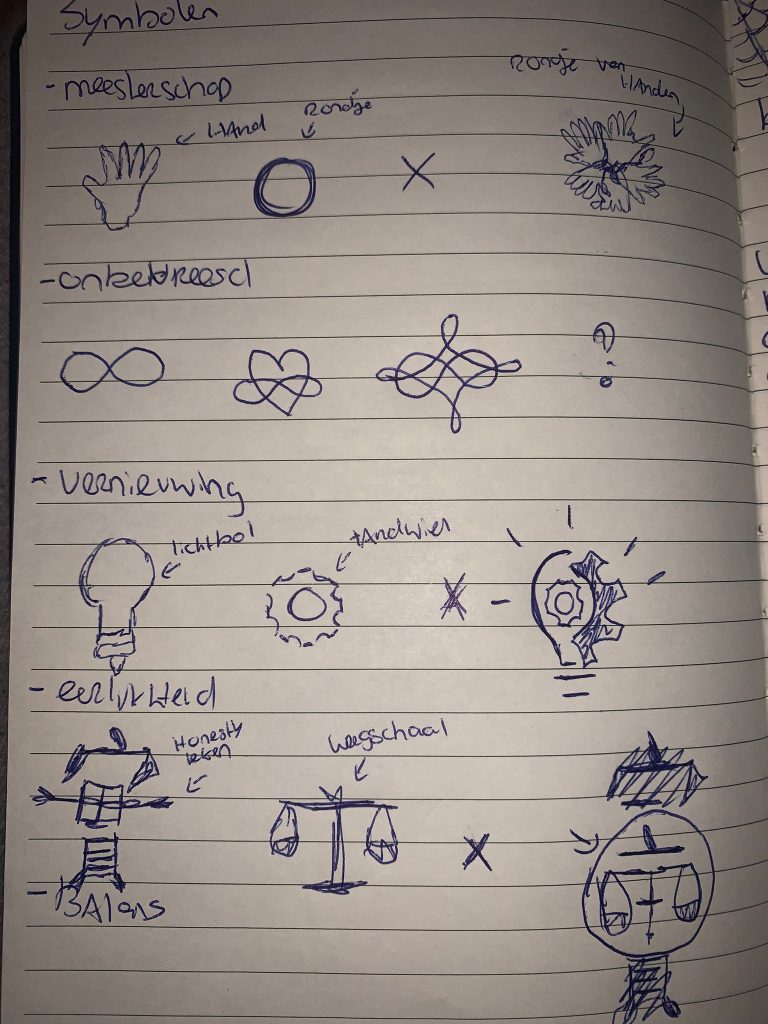 Symbolen
- meesterschap
Rondje van Handen
Hand
Rondje
X
- onbevreesd
?
- Vernieuwing
lichtbol
tAndwiel
X
- eerlijkheid
Honesty teken
Weegschaal
X
- BAlans